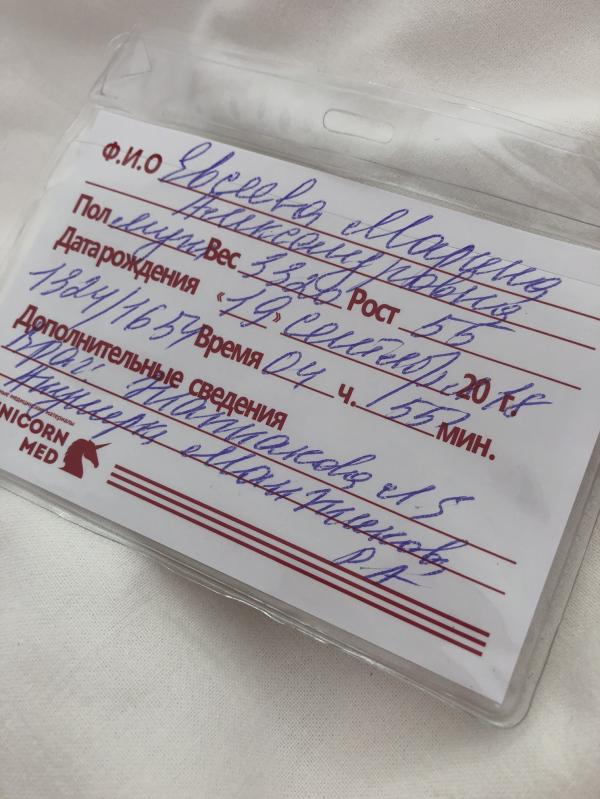 Ф.И.О Евсеева Марина
Александровна
Пол муж Вес 3320 Рост 55
Дата рождения «19» сентября 2018 г.
1324/1654 Время 04 ч. 55 мин.
Дополнительные сведения
Врач
Акушерка
UNICORN
MED